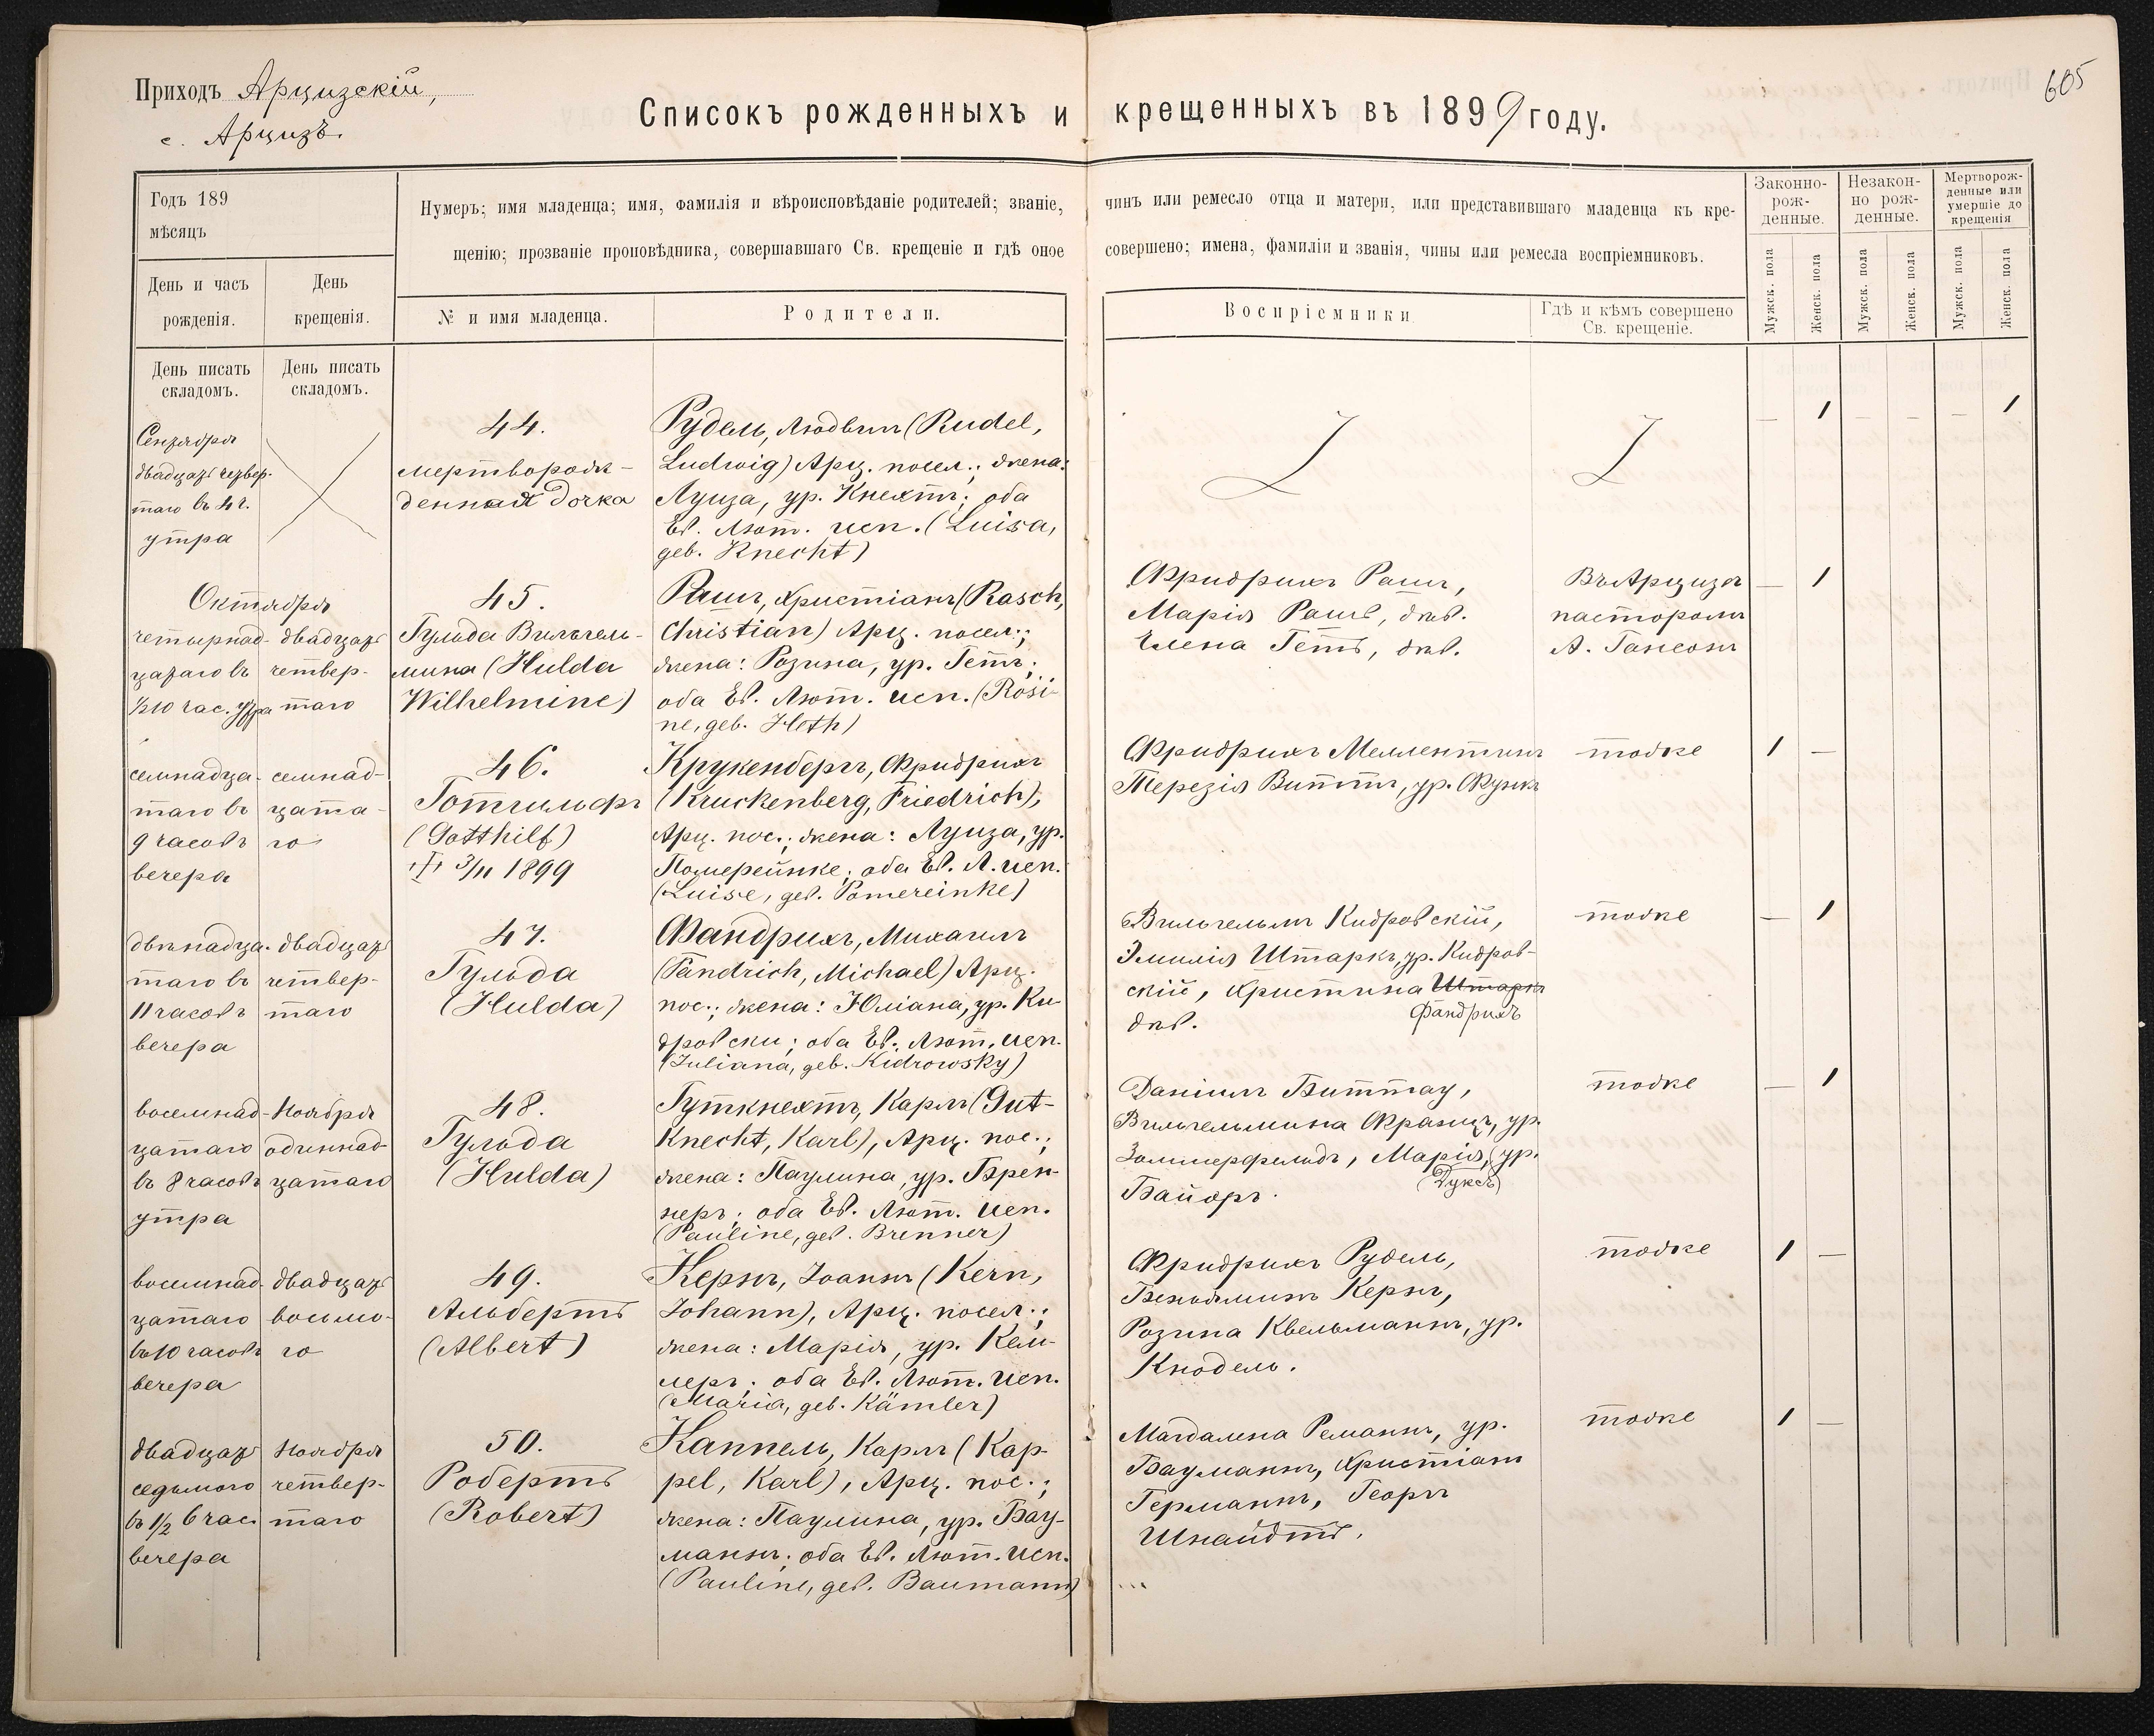 Приходъ Арцизскій,
с. Арцизъ.
605
Списокъ рожденныхъ и крещенныхъ въ 1899 году.
Годъ 189
мѣсяцъ
День и часъ рожденія.
День крещенія.
Нумеръ; имя младенца; имя, фамилія и вѣроисповѣданіе родителей; званіе, чинъ или ремесло отца и матери, или представившаго младенца къ кре-
щенію; прозваніе проповѣдника, совершавшаго Св. крещеніе и гдѣ оное совершено; имена, фамиліи и званія, чины или ремесла воспріемниковъ.
№ и имя младенца.
Родители.
Воспріемники
Гдѣ и кѣмъ совершено
Св. крещеніе.
Законно-
рож-
денные.
Незакон-
но рож-
денные.
Мертворож-
денные или
умершіе до
крещенія
Мужск. пола
Женск. пола
Мужск. пола
Женск. пола
Мужск. пола
Женск. пола
День писать
складомъ.
День писать
складомъ.
Сентября
двадцать четвер-
таго въ 4 ч.
утра
44.
мертворож-
денная дочка
Рудель, Людвигъ (Rudel,
Ludwig) Арц. посел.; жена:
Луиза, ур. Кнехтъ; оба
Ев. Лют. исп. (Luisa,
geb. Knecht)
— 1 — — — 1
Октября
четырнад-
цатаго въ
½10 час. утра
двадцать
четвер-
таго
45.
Гульда Вильгель-
мина (Hulda
Wilhelmine)
Рашъ, Христіанъ (Rasch,
Christian) Арц. посел.;
жена: Розина, ур. Гетъ;
оба Ев. Лют. исп. (Rosi-
ne, geb. Heth)
Фридрихъ Рашъ,
Марія Рашъ, дѣв.
Елена Гетъ, дѣв.
Въ Арцизѣ
пасторомъ
А. Гансонъ
— 1
семнадца-
таго въ
9 часовъ
вечера
семнад-
цата-
го
46.
Готгильфъ
(Gotthilf)
3/11 1899
Крукенбергъ, Фридрихъ
(Kruckenberg, Friedrich),
Арц. пос.; жена: Луиза, ур.
Померейнке; оба Ев. Л. исп.
(Luise, geb. Pomereinke)
Фридрихъ Меллентинъ
Терезія Виттъ, ур. Функъ
тоже
1 —
двѣнадца-
таго въ
11 часовъ
вечера
двадцать
четвер-
таго
47.
Гульда
(Hulda)
Фандрихъ, Михаилъ
(Fandrich, Michael) Арц.
пос.; жена: Юліана, ур. Ки-
дровски; оба Ев. Лют. исп.
(Juliana, geb. Kidrowsky)
Вильгельмъ Кидровскій,
Эмилія Штаркъ, ур. Кидров-
скій, Христина Штаркъ
Фандрихъ
дѣв.
тоже
— 1
восемнад-
цатаго
въ 8 часовъ
утра
Ноября
одиннад-
цатаго
48.
Гульда
(Hulda)
Гуткнехтъ, Карлъ (Gut-
knecht, Karl), Арц. пос.;
жена: Паулина, ур. Брен-
неръ; оба Ев. Лют. исп.
(Pauline, geb. Brenner)
Даніилъ Биттау,
Вильгельмина Францъ, ур.
Зоммерфельдъ, Марія, ур.
(Дуксъ)
Байоръ.
тоже
— 1
восемнад-
цатаго
въ 10 часовъ
вечера
двадцать
восьмо-
го
49.
Альбертъ
(Albert)
Кернъ, Іоаннъ (Kern,
Johann), Арц. посел.;
жена: Марія, ур. Кем-
леръ; оба Ев. Лют. исп.
(Maria, geb. Kämler)
Фридрихъ Рудель,
Веніаминъ Кернъ,
Розина Квельманнъ, ур.
Кнодель.
тоже
1 —
двадцать
седьмого
въ ½ 6 час.
вечера
Ноября
четвер-
таго
50.
Робертъ
(Robert)
Каппель, Карлъ (Kap-
pel, Karl), Арц. пос.;
жена: Паулина, ур. Бау-
маннъ; оба Ев. Лют. исп.
(Pauline, geb. Baumann)
Магдалена Реманнъ, ур.
Бауманнъ, Христіанъ
Германнъ, Георгъ
Шнайдтъ.
тоже
1 —